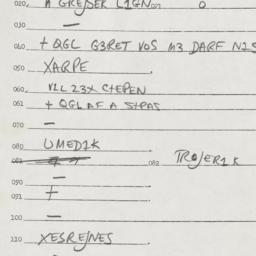 020. A GREJSEK L1GN 027 O
030. —
040. + QGL G3RET VOS M3 DARF NIS
050 XARPE
060 V2L 23X CTEPEN
061 + QGL AF A STPAS
070 —
080 UMED1K
081 082 TROJER1K
090 —
091 +
100 —
110 XESREJNES